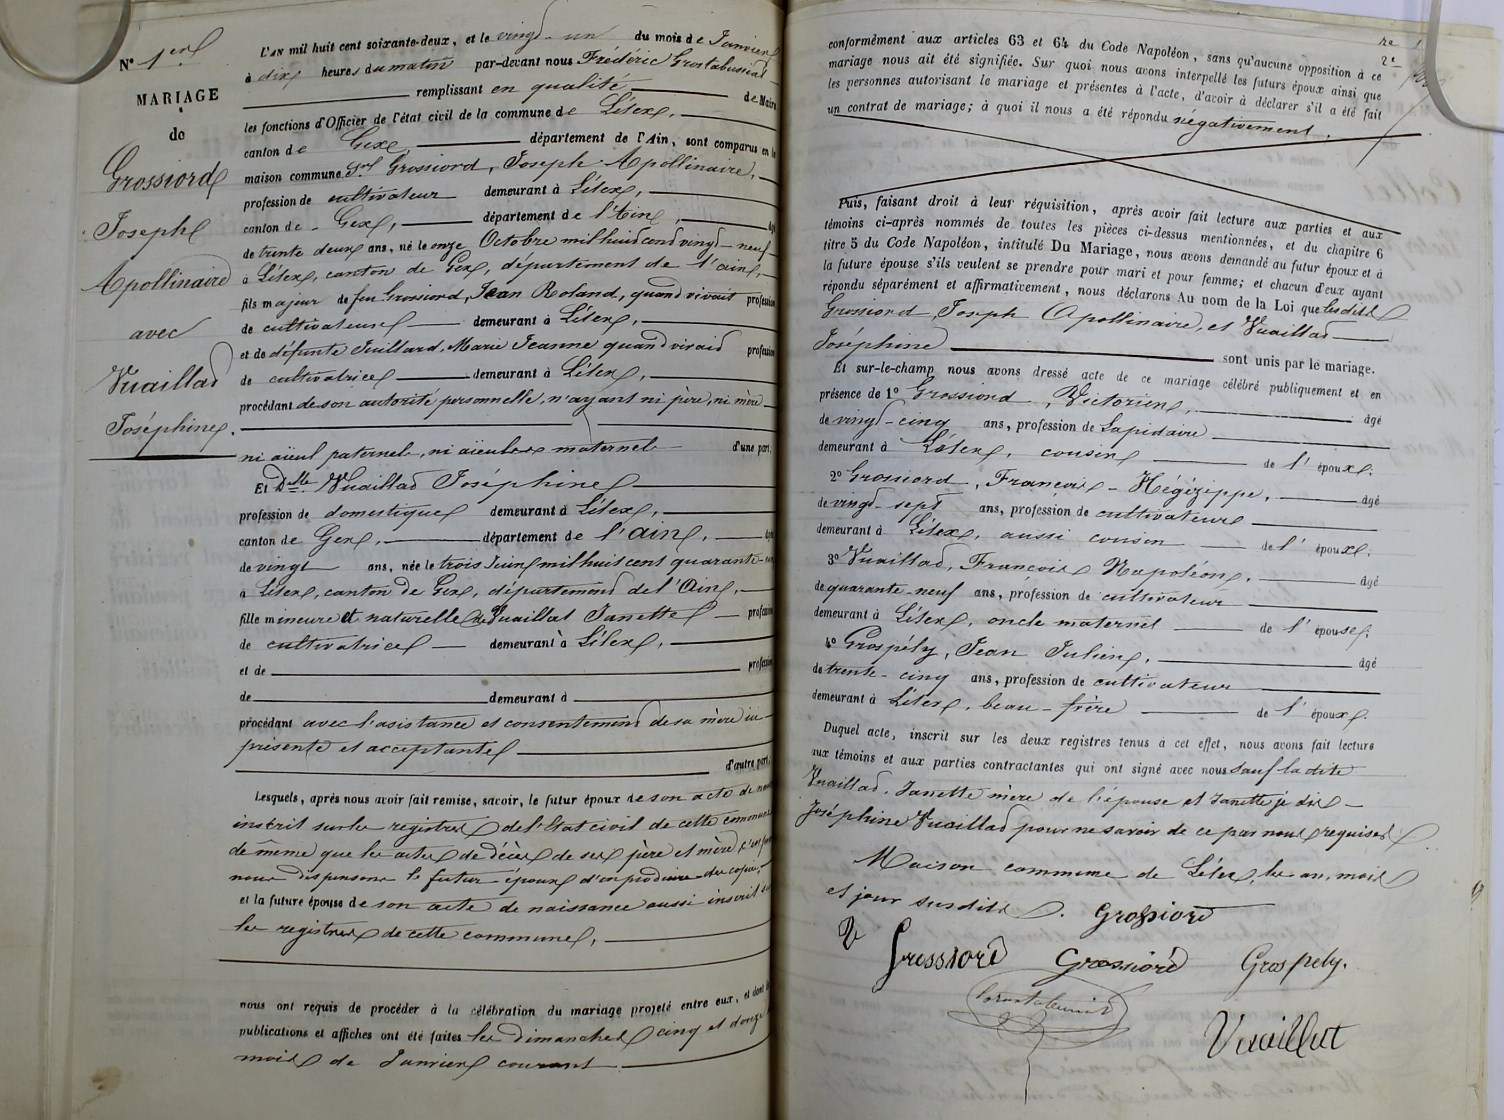 N° 1er
MARIAGE
de
Grossiord
Joseph
Apollinaire
avec
Vuaillad
Joséphine.
L'AN mil huit cent soixante-deux, et le vingt-un du mois de Janvier
à dix heures du matin par-devant nous Frédéric Grostabussiat
remplissant en qualité de Maire
les fonctions d'Officier de l'état civil de la commune de Lélex,
canton de Gex, département de l'Ain, sont comparus en la
maison commune Sr Grossiord, Joseph Apollinaire,
profession de cultivateur demeurant à Lélex,
canton de Gex, département de l'Ain, âgé
de trente deux ans, né le onze Octobre mil huit cent vingt-neuf
à Lélex, canton de Gex, département de l'ain,
fils majeur de feu Grossiord, Jean Roland, quand vivait profession
de cultivateur demeurant à Lélex,
et de défunte Juillard, Marie Jeanne quand vivait profession
de cultivatrice demeurant à Lélex,
procédant de son autorité personnelle, n'ayant ni père, ni mère
ni aïeul paternels, ni aïeules maternels d'une part,
Et Dlle Vuaillad Joséphine
profession de domestique demeurant à Lélex,
canton de Gex, département de l'ain, âgée
de vingt ans, née le trois Juin mil huit cent quarante-un
à Lélex, canton de Gex, département de l'Ain,
fille mineure et naturelle de Vuaillat Janette profession
de cultivatrice demeurant à Lélex,
et de profession
de demeurant à
procédant avec l'asistance et consentement de sa mère ici
présente et acceptante
d'autre part,
Lesquels, après nous avoir fait remise, savoir, le futur époux de son acte de
inscrit sur les registres de l'Etat civil de cette commune
de même que les actes de décès de ses père et mère
nous dispensons le futur époux d'en produire des copies,
et la future épouse de son acte de naissance aussi inscrit
les registres de cette commune,
nous ont requis de procéder à la célébration du mariage projeté entre eux, et dont les
publications et affiches ont été faites les dimanches cinq et douze
mois de Janvier courant
conformément aux articles 63 et 64 du Code Napoléon, sans qu'aucune opposition à ce
mariage nous ait été signifiée. Sur quoi nous avons interpellé les futurs époux ainsi que
les personnes autorisant le mariage et présentes à l'acte, d'avoir à déclarer s'il a été fait
un contrat de mariage; à quoi il nous a été répondu négativement.
Puis, faisant droit à leur réquisition, après avoir fait lecture aux parties et aux
témoins ci-après nommés de toutes les pièces ci-dessus mentionnées, et du chapitre 6
titre 5 du Code Napoléon, intitulé Du Mariage, nous avons demandé au futur époux et à
la future épouse s'ils veulent se prendre pour mari et pour femme; et chacun d'eux ayant
répondu séparément et affirmativement, nous déclarons Au nom de la Loi que lesdits
Grossiord, Joseph Apollinaire, et Vuaillad
Joséphine sont unis par le mariage.
Et sur-le-champ nous avons dressé acte de ce mariage célébré publiquement et en
présence de 1° Grossiord, Victorien, âgé
de vingt-cinq ans, profession de Lapidaire
demeurant à Lélex, cousin de l'époux;
2° Grossiord, François-Hégézippe, âgé
de vingt-sept ans, profession de cultivateur
demeurant à Lélex, aussi cousin de l'époux;
3° Vuaillad, François Napoléon, âgé
de quarante-neuf ans, profession de cultivateur
demeurant à Lélex, oncle maternel de l'épouse;
4° Grospély, Jean Julien, âgé
de trente-cinq ans, profession de cultivateur
demeurant à Lélex, beau-frère de l'époux.
Duquel acte, inscrit sur les deux registres tenus à cet effet, nous avons fait lecture
aux témoins et aux parties contractantes qui ont signé avec nous sauf la dite
Vuaillad, Janette mère de l'épouse et Janette je dis
Joséphine Vuaillad pour ne savoir de ce par nous requises.
Maison commune de Lélex, les an, mois
et jour susdits. Grossiord
Grossiord Grossiord Grospely.
Vuaillat